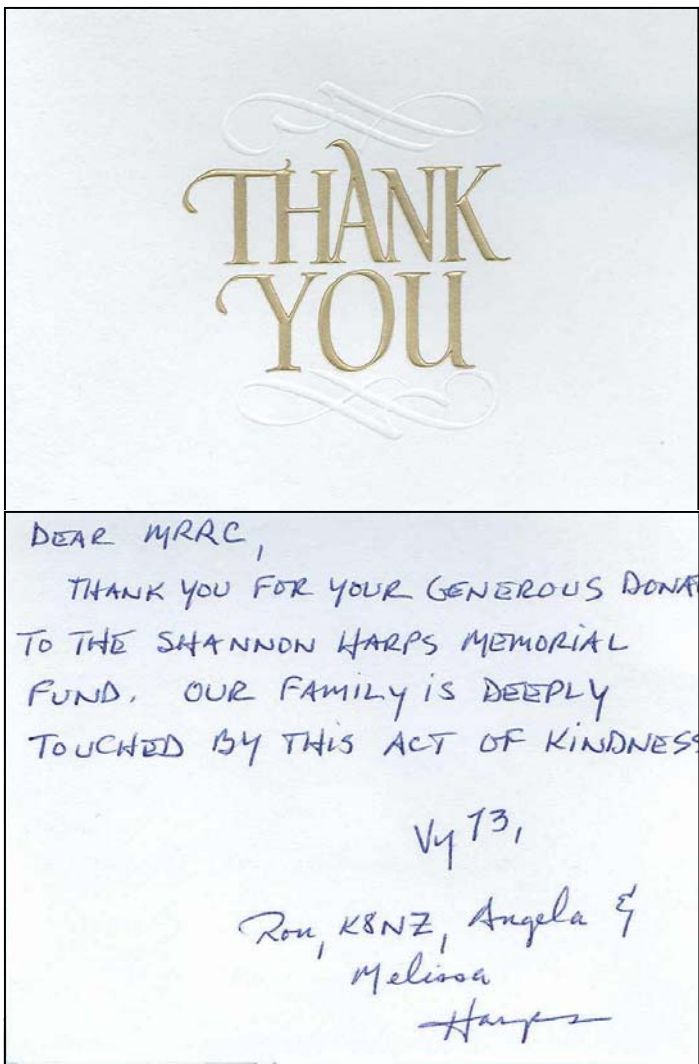 THANK
YOU
DEAR MRRC,
THANK YOU FOR YOUR GENEROUS DONA
TO THE SHANNON HARPS MEMORIAL
FUND. OUR FAMILY IS DEEPLY
TOUCHED BY THIS ACT OF KINDNESS
Vy 73,
Ron, K8NZ, Angela &
Melissa
Harps